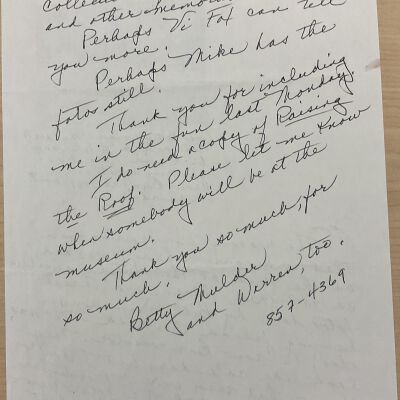 and other
Perhaps Vi Fox can tell
you more.
Perhaps Mike has the
fotos still.
Thank you for including
me in the fun last Monday.
I do need a copy of Raising
the Roof. Please let me know
when somebody will be at the
museum.
Thank you so much, for
so much.
Betty Mulder
and Warren, too.
857-4369